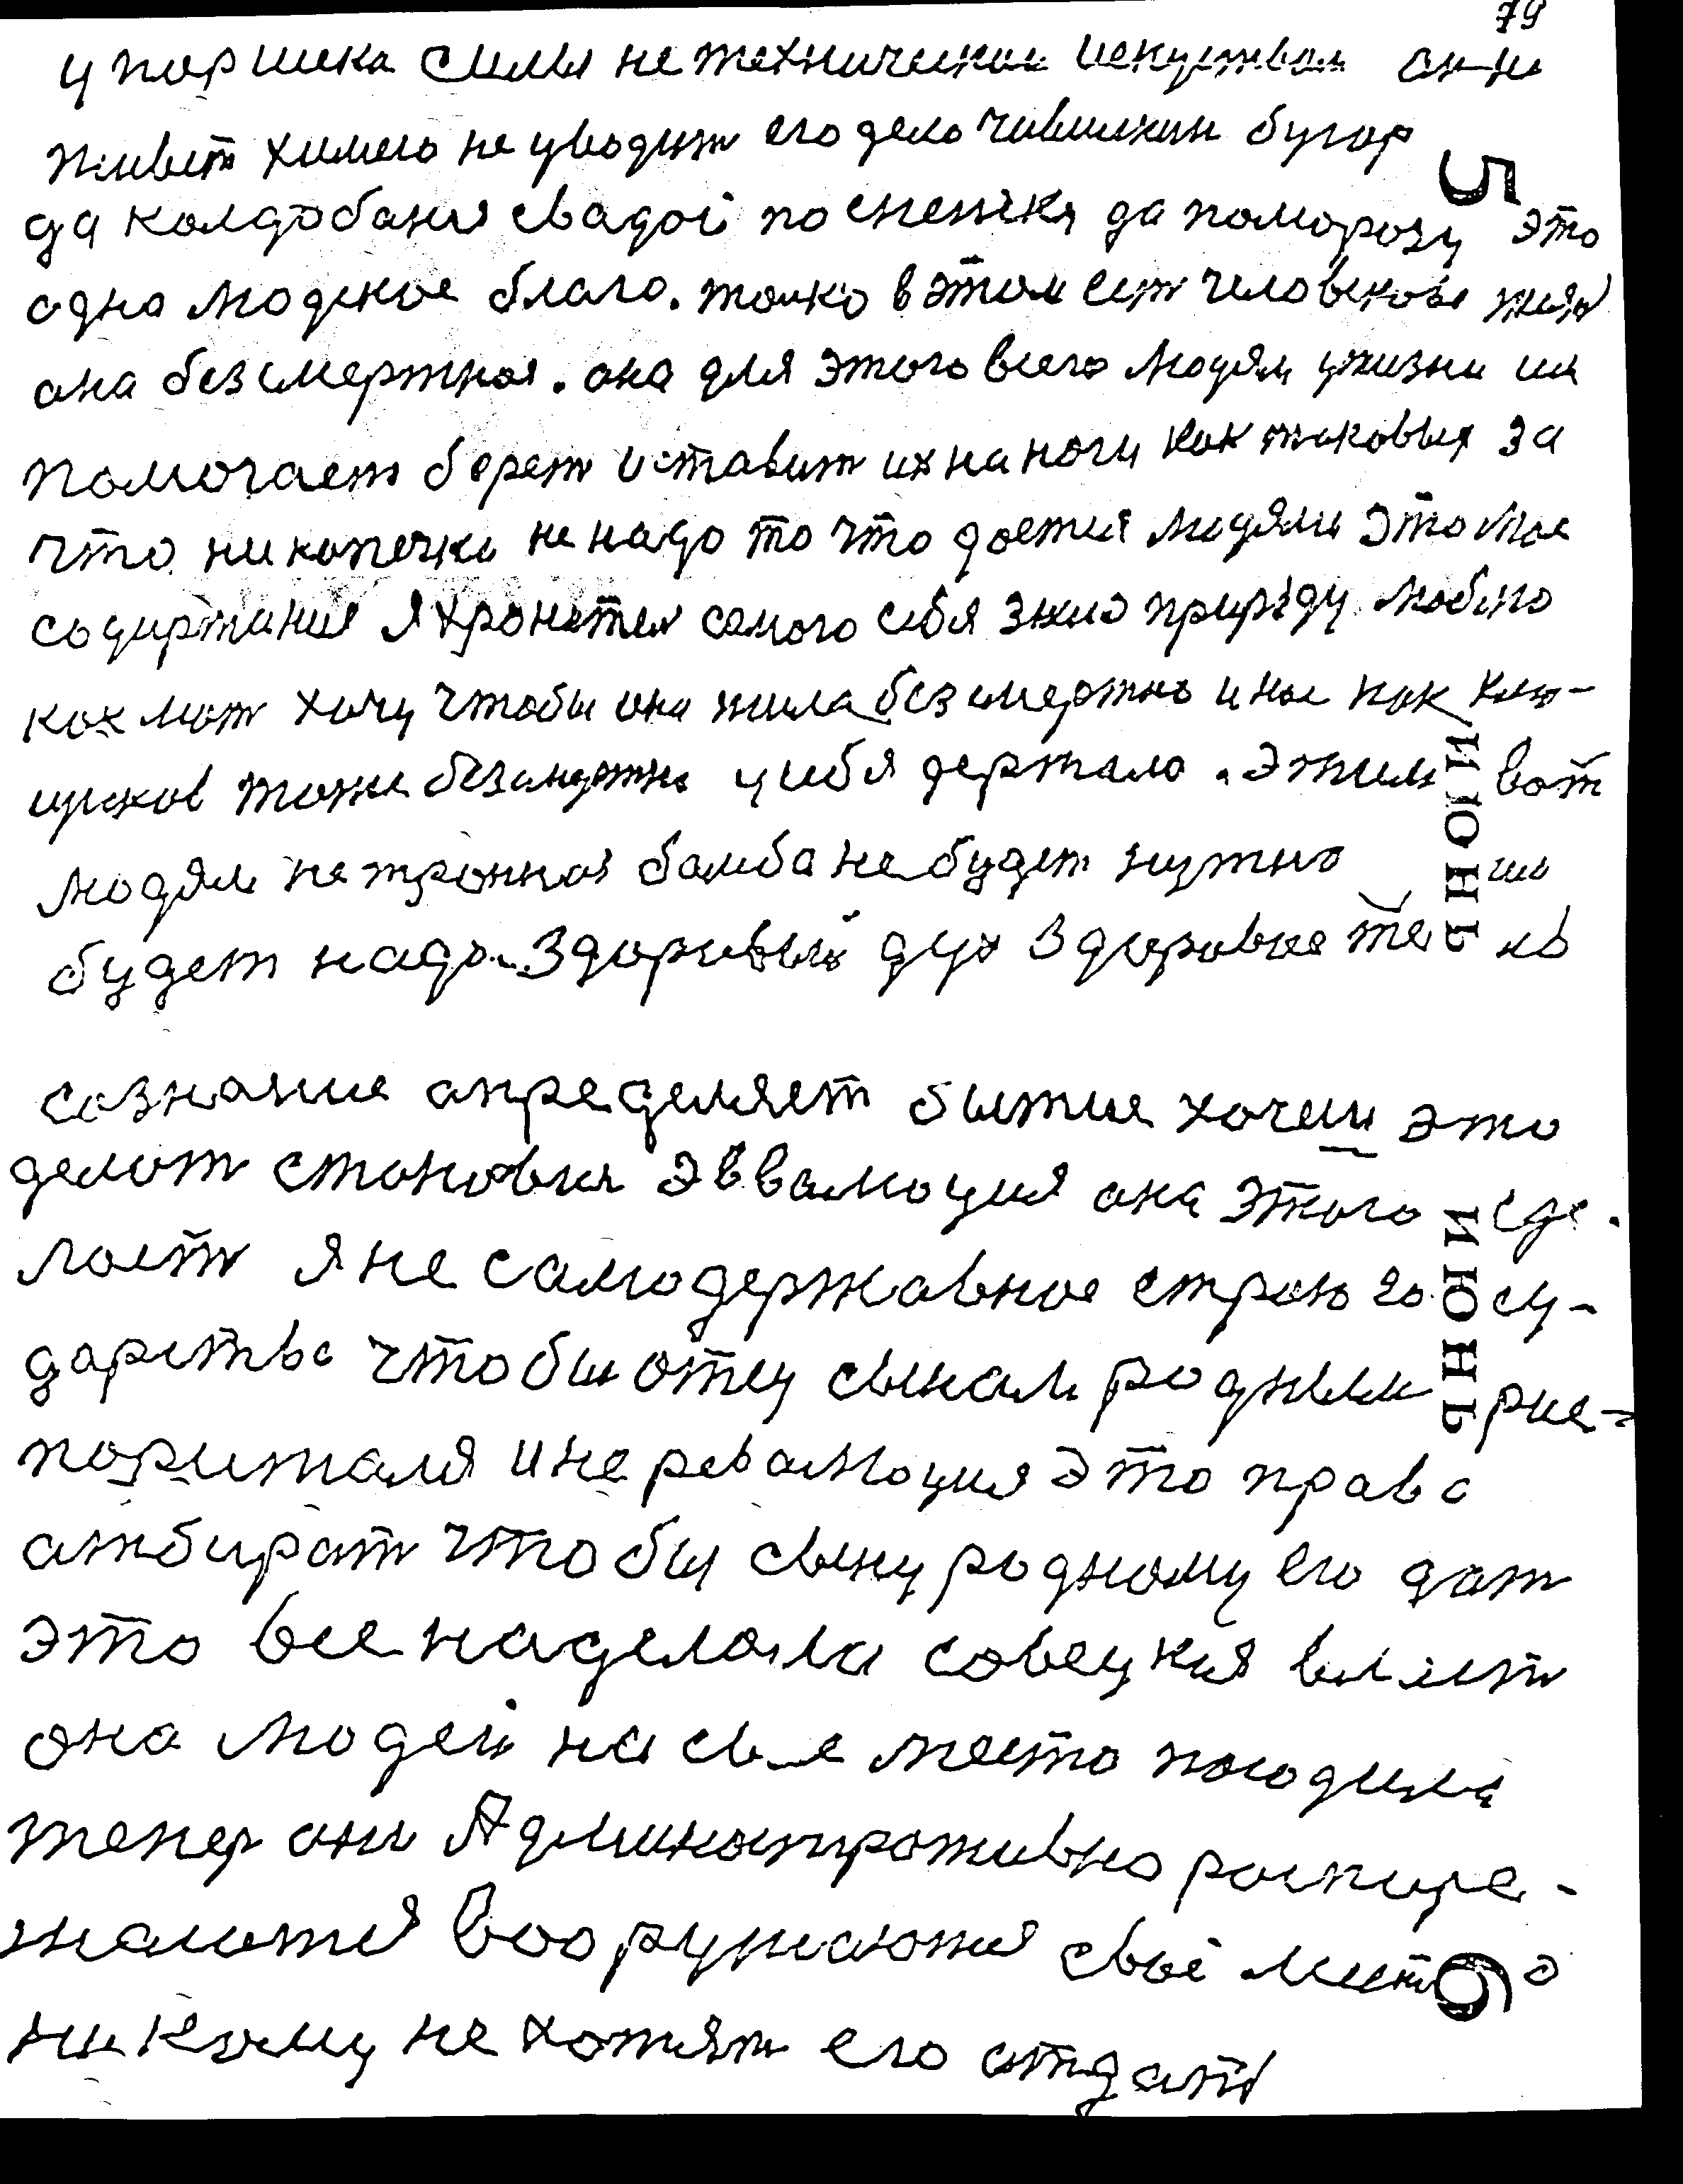 79
у поршика силы не техническим искуством он ни
живет химею не уводит его дело чивилкин бугор
5
да колдобаня с вадой по снешкя да поморозу это
одно людское благо. толко в этом ест человекова
она безсмертная. она для этого всего людям ужизни их
помогает берет и ставит их на ноги как таковых за
что ни копечки не надо то что доется людями это мое
содиржание я самого себя знаю природу люблю
как мат хочу чтобы она жила безсмертно и нас как
тоже безсмертно у себя держала. этим вот
людям нетронноя бамба не будет нужно
будет надо. Здоровый дух здоровое тело
ИЮНЬ
сознание определяет бытие хочеш это
делат становися эввалюция она этого сде-
лоет я не самодержавное строю госу-
дарство чтобы отец сынам родным
ИЮНЬ
и не революция это право
атбират чтобы сыну родному его дат
это все наделала совецкая власт
она людей на свое место посодила
тепер они Админостротивно
вооружаются своё место
6
никому не хотят его отдать